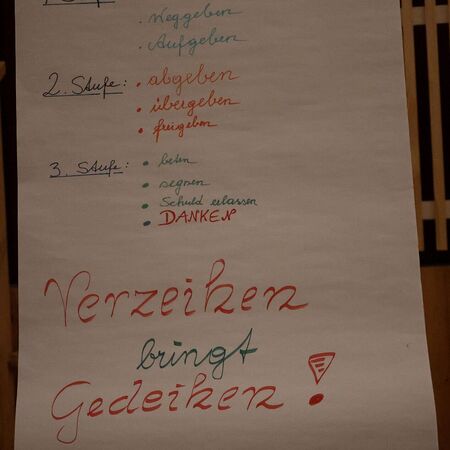 . Weggeben
. Aufgeben
2. Stufe: • abgeben
• übergeben
• freigeben
3. Stufe: • beten
• segnen
• Schuld erlassen
• DANKEN
Verzeihen
bringt
Gedeihen !